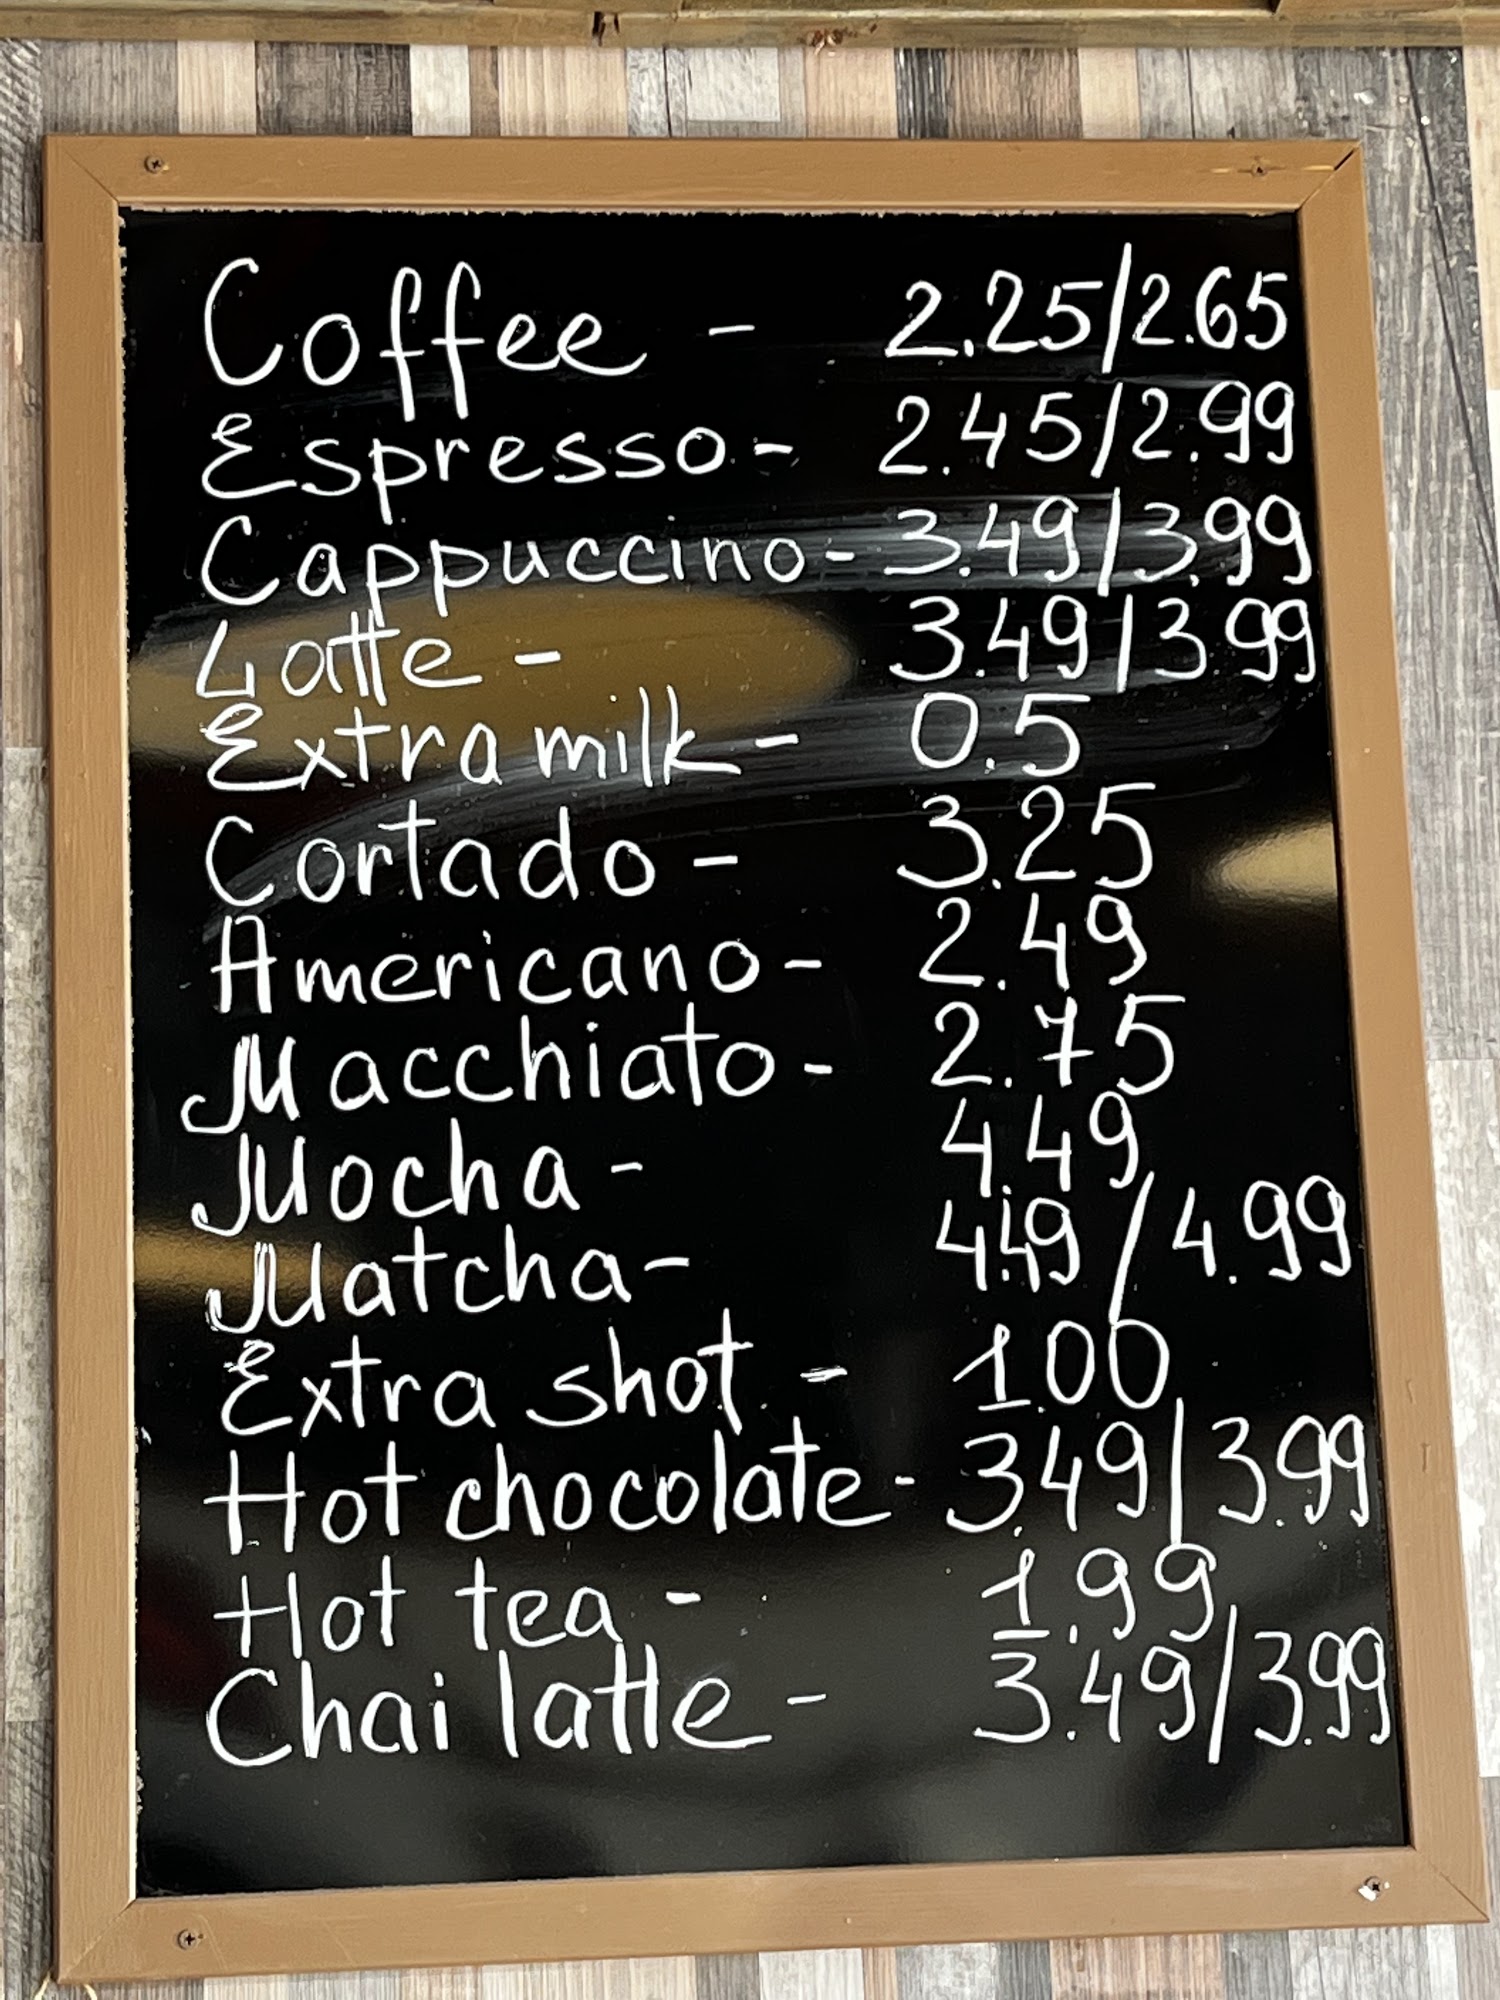 Coffee - 2.25/2.65
Espresso - 2.45/2.99
Cappuccino - 3.49/3.99
Latte - 3.49/3.99
Extra milk - 0.5
Cortado - 3.25
Americano - 2.49
Macchiato - 2.75
Mocha - 4.49
Matcha - 4.49/4.99
Extra shot - 1.00
Hot chocolate - 3.49/3.99
Hot tea - 1.99
Chai latte - 3.49/3.99